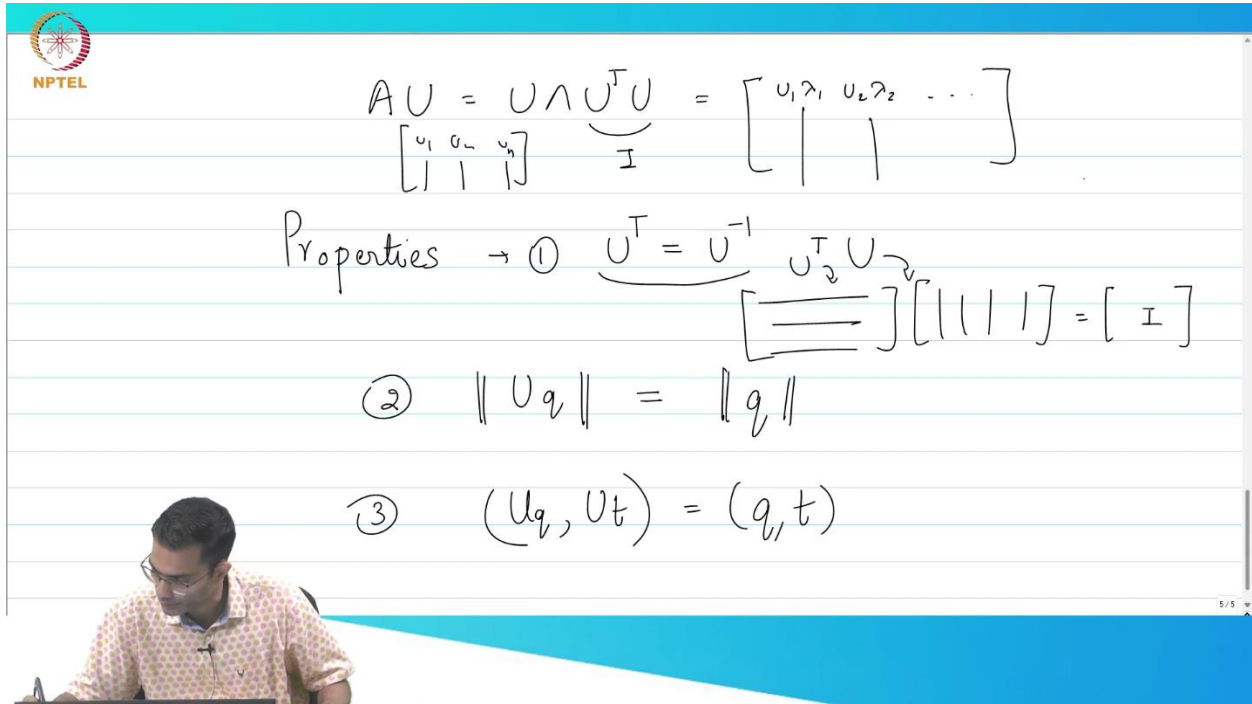 NPTEL
A U = U Λ UᵀU = [ u₁λ₁ u₂λ₂ ... ]
[ u₁ u₂ uₙ ] I
Properties → ① Uᵀ = U⁻¹ Uᵀ U
[ ] [ ] = [ I ]
② || Uq || = || q ||
③ (Uq, Ut) = (q, t)
5 / 5